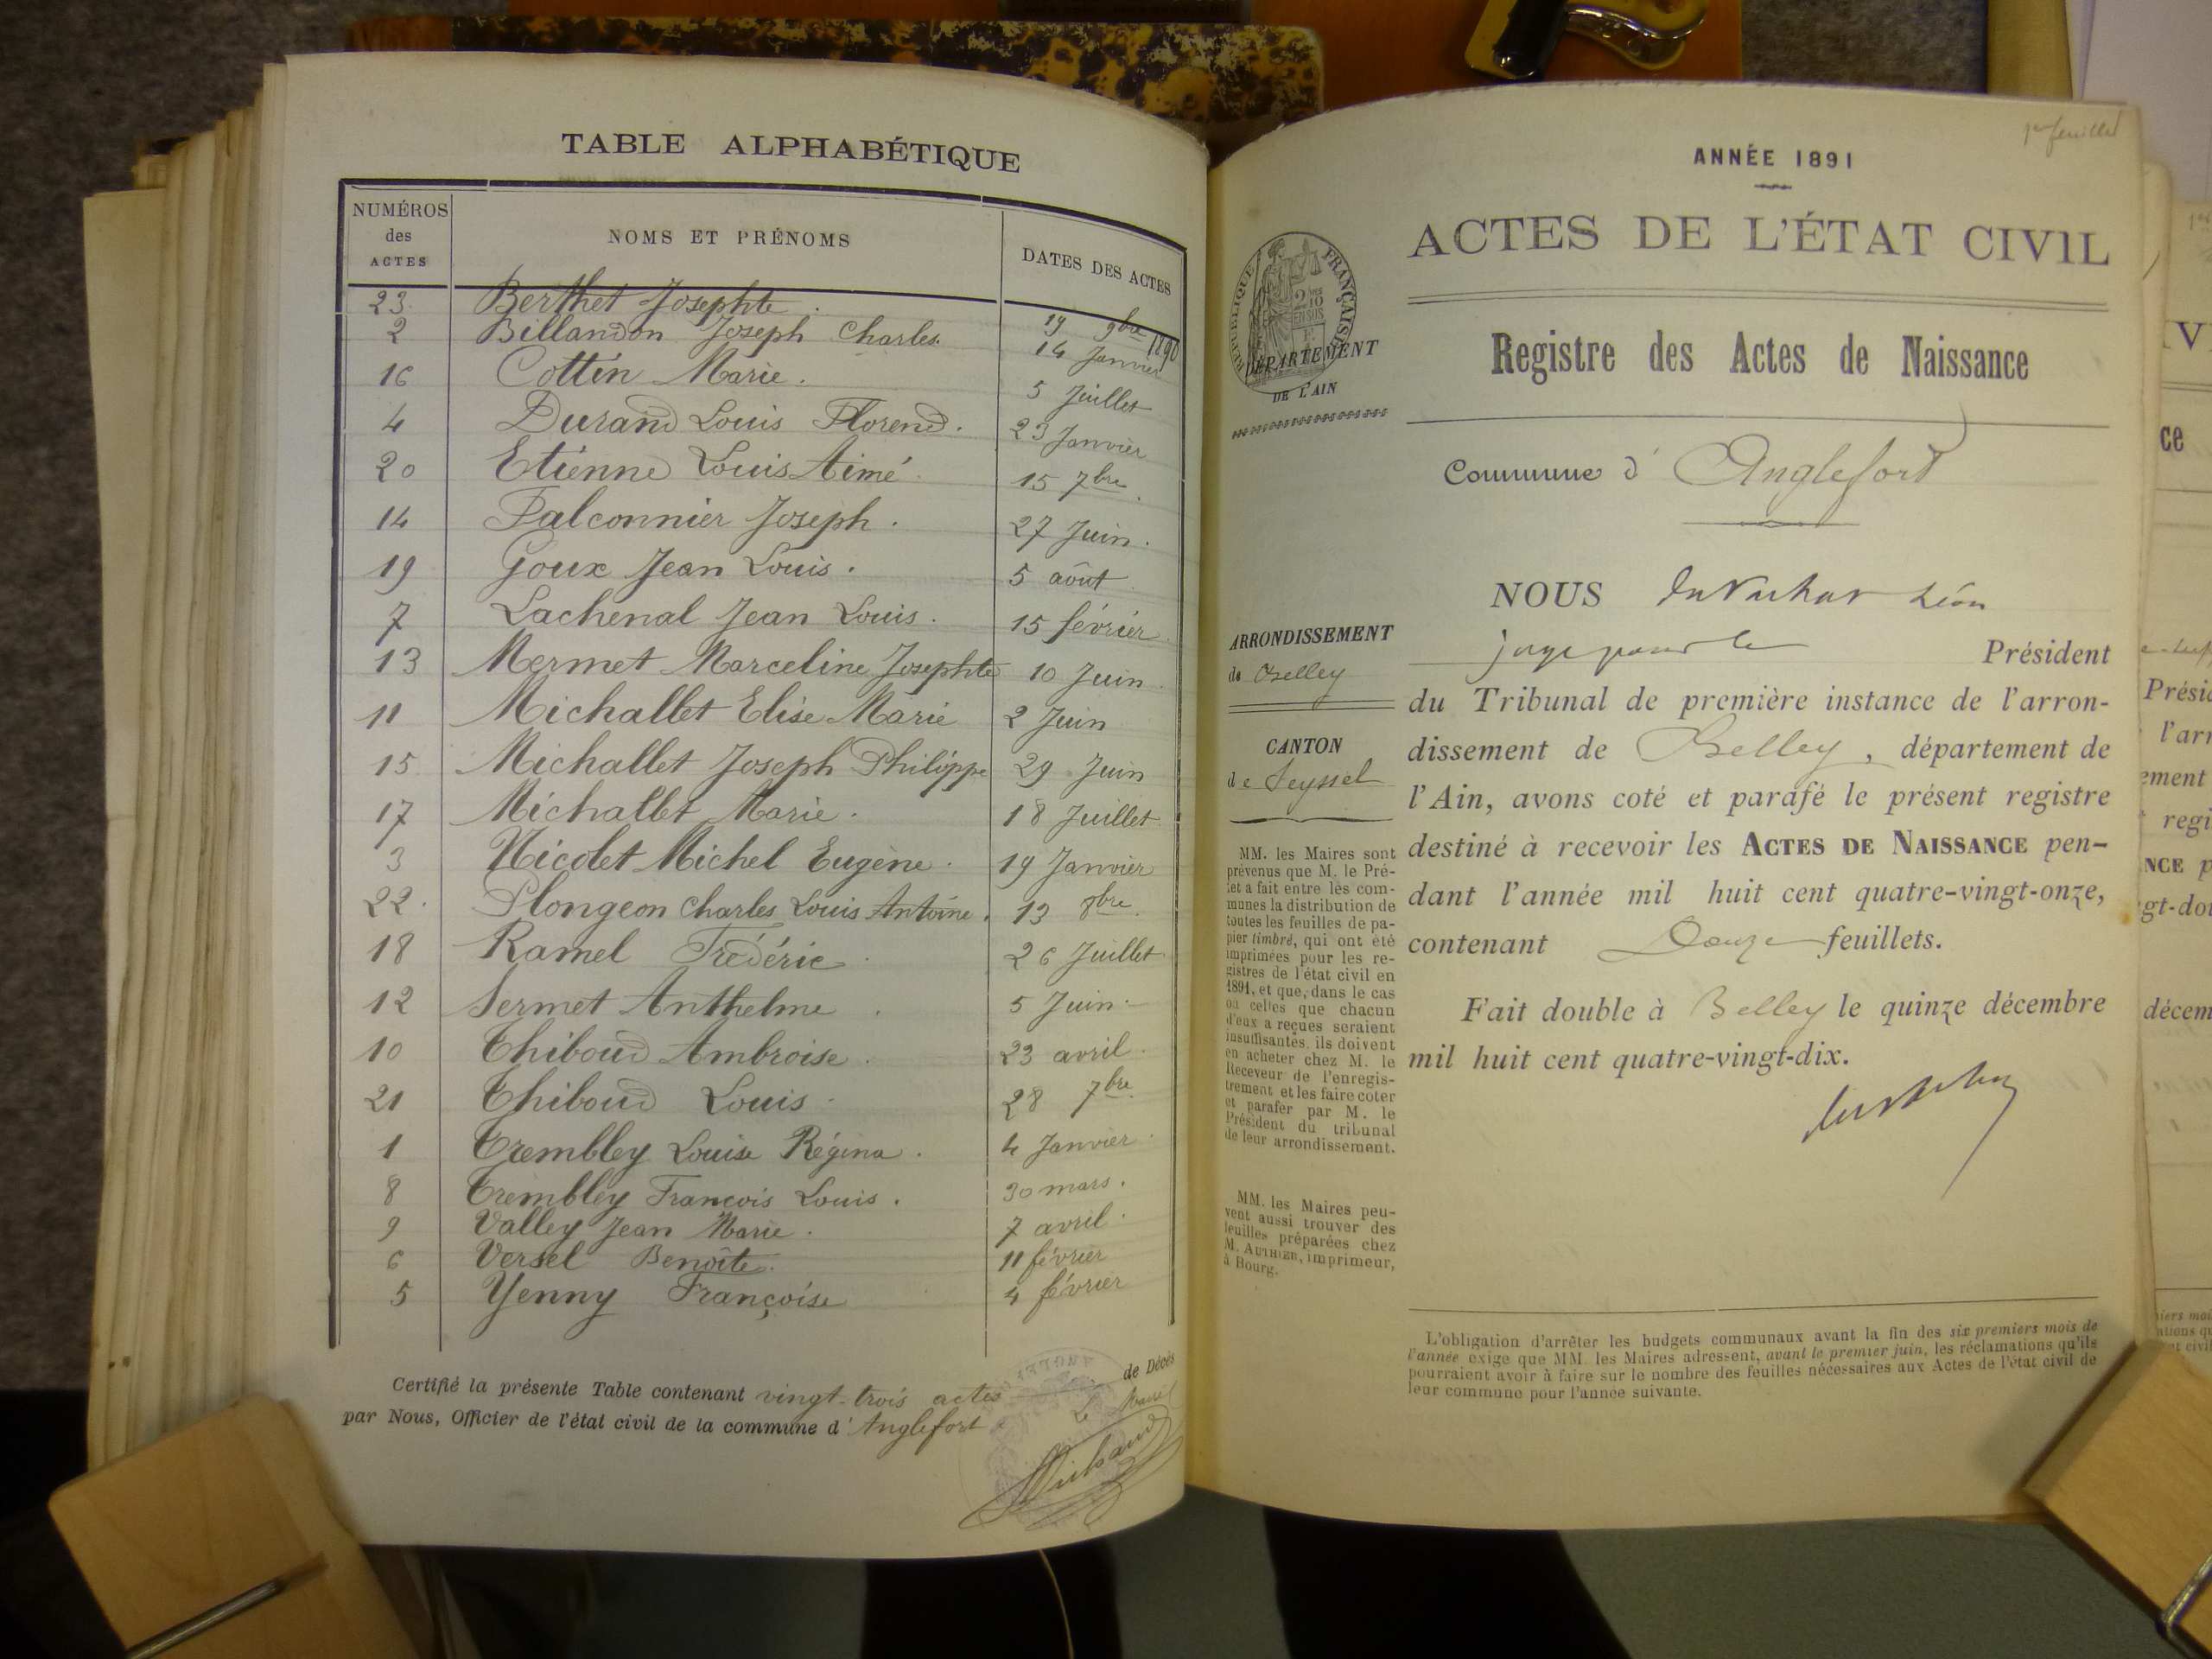 TABLE ALPHABÉTIQUE
NUMÉROS des ACTES NOMS ET PRÉNOMS DATES DES ACTES
23 Berthet Josephte. 19 9bre 1890
2 Billandon Joseph Charles. 14 Janvier
16 Cottin Marie. 5 Juillet
4 Durand Louis Florend. 23 Janvier
20 Etienne Louis Aimé. 15 7bre.
14 Falconnier Joseph. 27 Juin.
19 Goux Jean Louis. 5 août
7 Lachenal Jean Louis. 15 février
13 Mermet Marceline Josephte 10 Juin.
11 Michallet Elise Marie 2 Juin
15 Michallet Joseph Philippe 29 Juin
17 Michallet Marie. 18 Juillet
3 Nicolet Michel Eugène. 19 Janvier
22. Plongeon Charles Louis Antoine. 13 8bre.
18 Ramel Frédéric. 26 Juillet
12 Sermet Anthelme. 5 Juin.
10 Thiboud Ambroise. 23 avril.
21 Thiboud Louis. 28 7bre.
1 Trembley Louise Régina. 4 Janvier.
8 Trembley François Louis. 30 mars.
9 Valley Jean Marie. 7 avril.
6 Versel Benoîte. 11 février
5 Yenny Françoise 4 février
Certifié la présente Table contenant vingt-trois actes de Décès
par Nous, Officier de l'état civil de la commune d'Anglefort
Le Maire
1er feuillet
ANNÉE 1891
ACTES DE L'ÉTAT CIVIL
RÉPUBLIQUE FRANÇAISE
DÉPARTEMENT
DE L'AIN
Registre des Actes de Naissance
Commune d'Anglefort
NOUS Léon
juge pour le Président
du Tribunal de première instance de l'arron-
dissement de Belley, département de
l'Ain, avons coté et parafé le présent registre
destiné à recevoir les ACTES DE NAISSANCE pen-
dant l'année mil huit cent quatre-vingt-onze,
contenant Douze feuillets.
Fait double à Belley le quinze décembre
mil huit cent quatre-vingt-dix.
ARRONDISSEMENT
de Belley
CANTON
de Seyssel
MM. les Maires sont
prévenus que M. le Pré-
fet a fait entre les com-
munes la distribution de
toutes les feuilles de pa-
pier timbré, qui ont été
imprimées pour les re-
gistres de l'état civil en
1891, et que, dans le cas
où celles que chacun
d'eux a reçues seraient
insuffisantes, ils doivent
en acheter chez M. le
Receveur de l'enregis-
trement et les faire coter
et parafer par M. le
Président du tribunal
de leur arrondissement.
MM. les Maires peu-
vent aussi trouver des
feuilles préparées chez
M. AUTHIER, imprimeur,
à Bourg.
L'obligation d'arrêter les budgets communaux avant la fin des six premiers mois de
l'année exige que MM. les Maires adressent, avant le premier juin, les réclamations qu'ils
pourraient avoir à faire sur le nombre des feuilles nécessaires aux Actes de l'état civil de
leur commune pour l'année suivante.